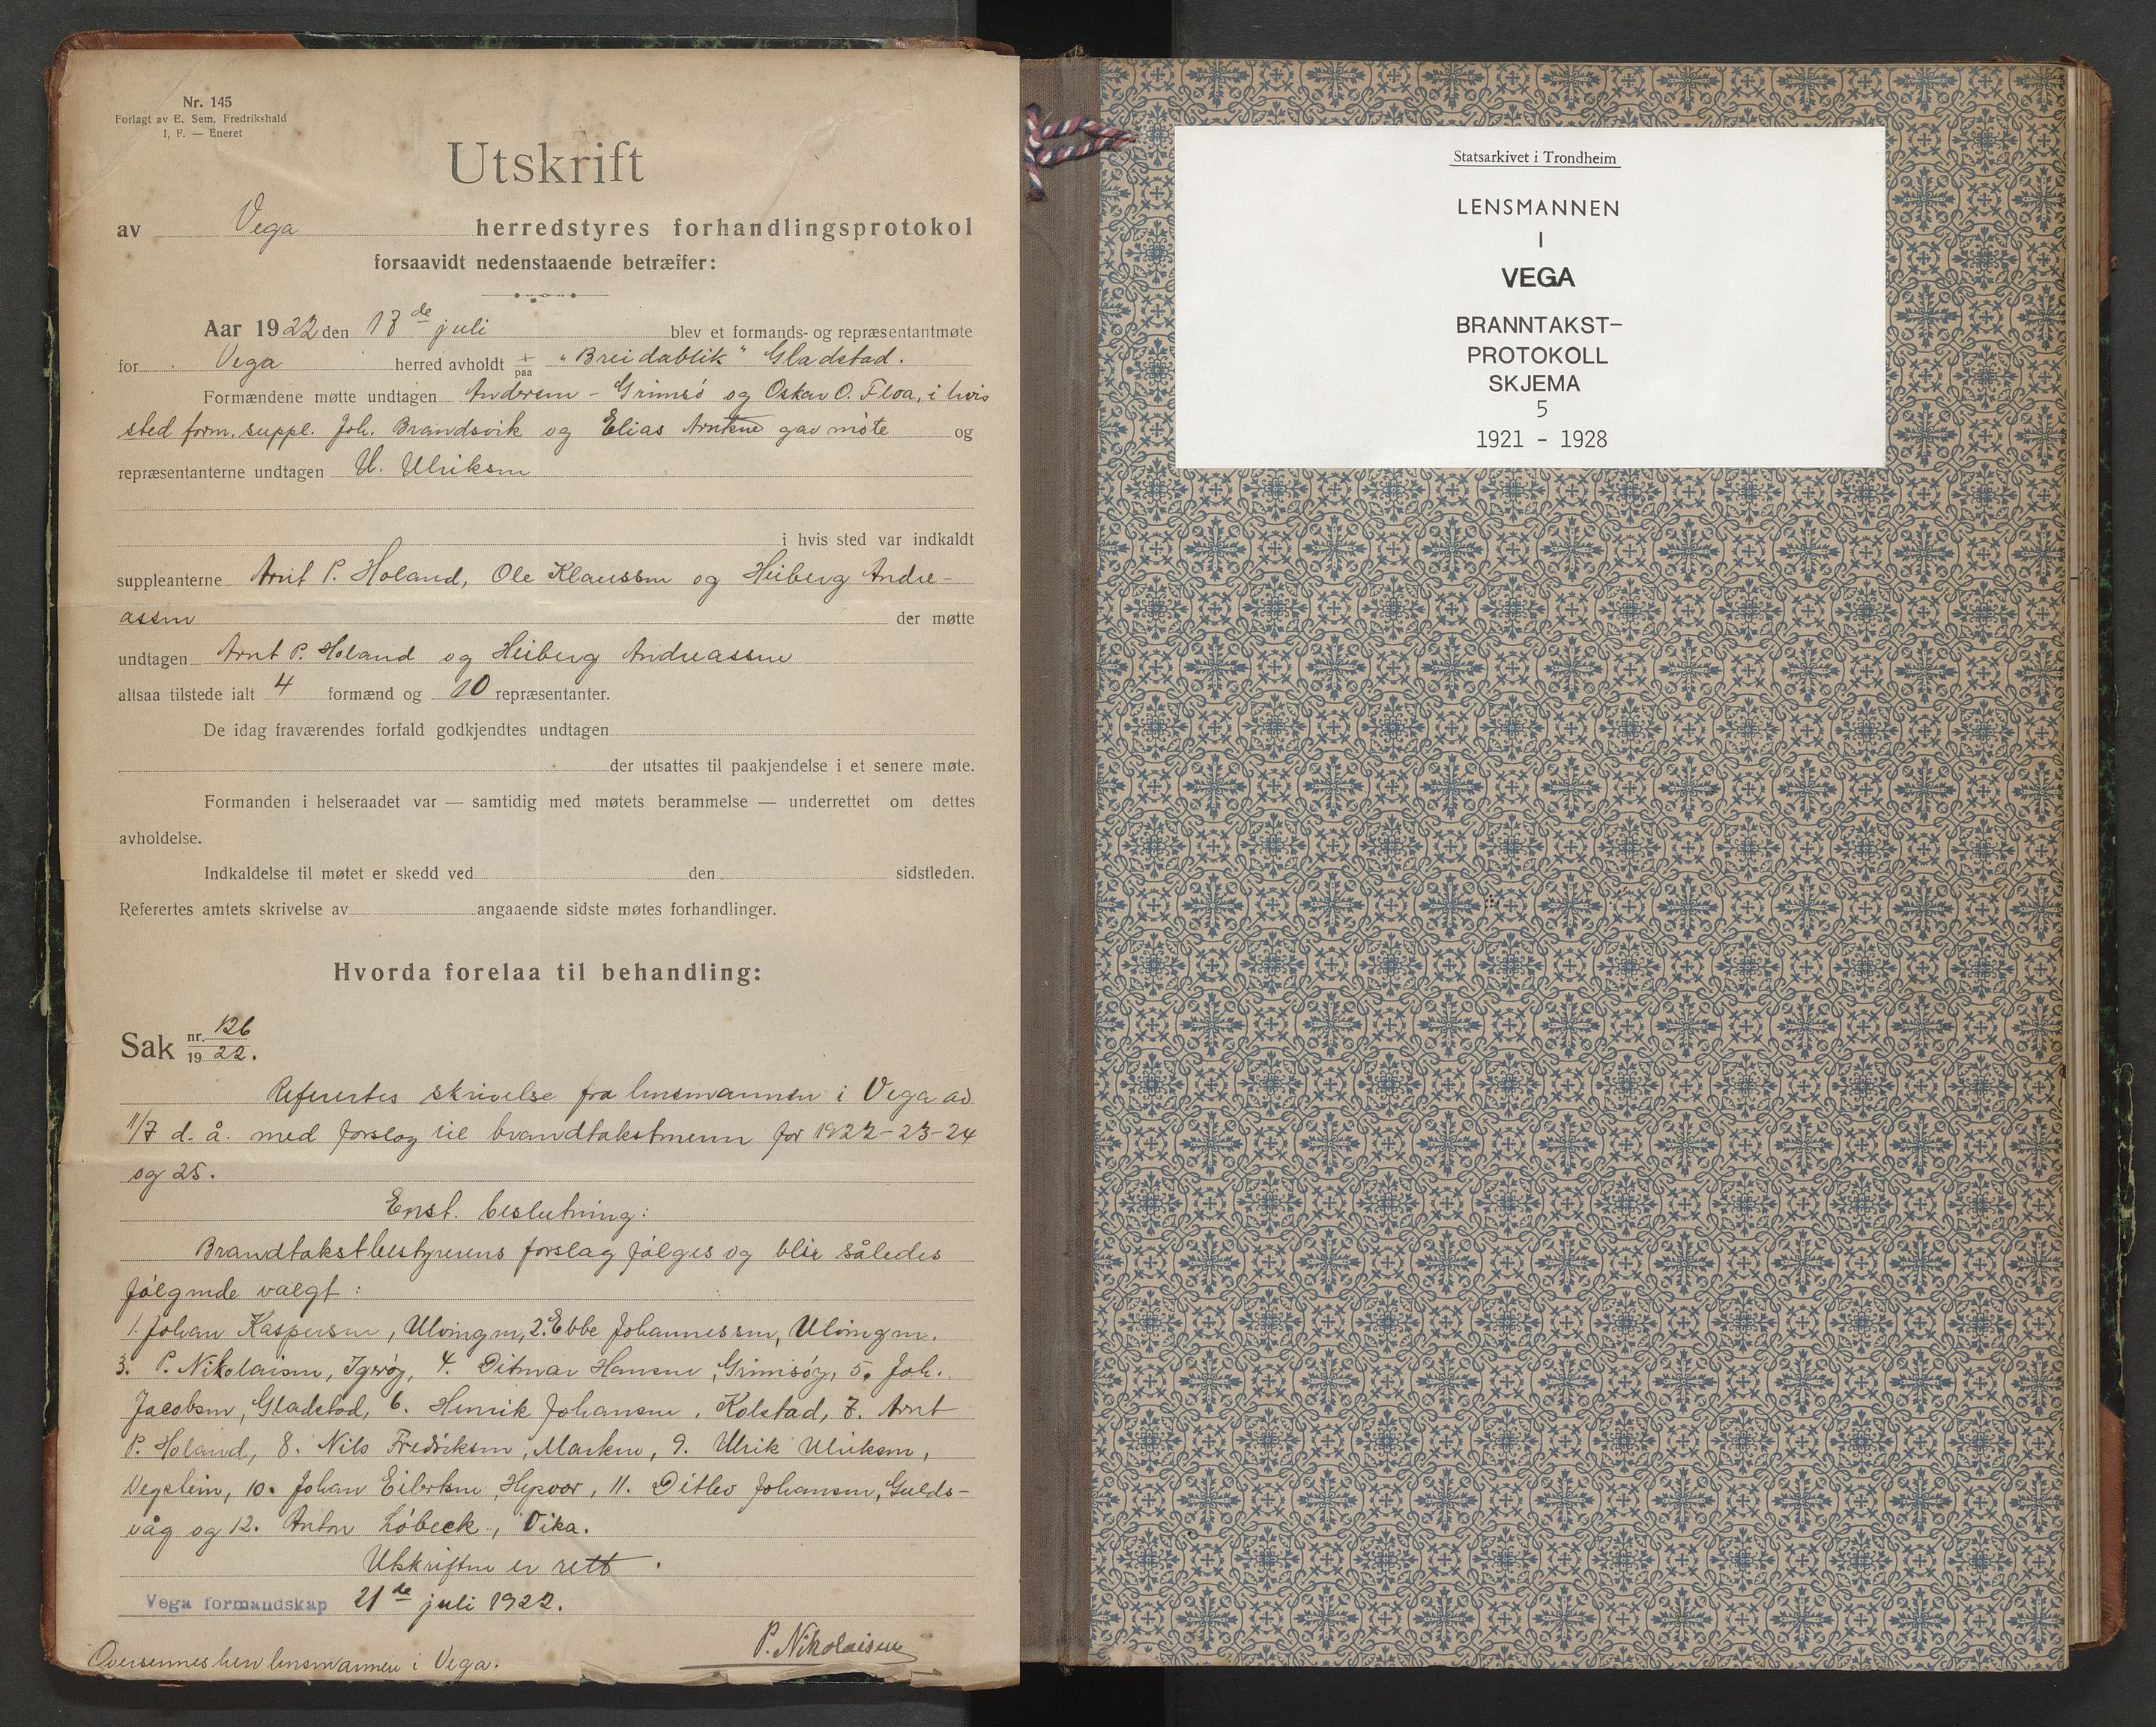 Nr. 145
Forlagt av E. Sem, Fredrikshald
I, F. — Eneret
Utskrift
av Vega herredstyres forhandlingsprotokol
forsaavidt nedenstaaende betræffer:
Aar 1922 den 13de juli blev et formands- og repræsentantmøte
for Vega herred avholdt i paa "Breidablik" Gladstad.
Formændene møtte undtagen Andersen - Grimsö og Oskar O. Floa, i hvis
sted form. suppl. Joh. Brandsvik og Elias Arntsen gav möte og
repræsentanterne undtagen U. Ulriksen
i hvis sted var indkaldt
suppleanterne Arnt P. Holand, Ole Klaussen og Heiberg Andre-
assen der møtte
undtagen Arnt P. Holand og Heiberg Andreassen
altsaa tilstede ialt 4 formænd og 10 repræsentanter.
De idag fraværendes forfald godkjendtes undtagen
der utsattes til paakjendelse i et senere møte.
Formanden i helseraadet var — samtidig med møtets berammelse — underrettet om dettes
avholdelse.
Indkaldelse til møtet er skedd ved den sidstleden.
Referertes amtets skrivelse av angaaende sidste møtes forhandlinger.
Hvorda forelaa til behandling:
Sak nr. 126
19 22.
Referertes skrivelse fra lensmannen i Vega av
11/7 d. å. med forslag til brandtakstmenn for 1922-23-24
og 25.
Enst. beslutning:
Brandtakstbestyrerens forslag fölges og blir således
fölgende valgt:
1. Johan Kaspersen, Ulvingen, 2. Ebbe Johannessen, Ulvingen.
3. P. Nikolaisen, Igeröy, 4. Ditmar Hansen, Grimsöy, 5. Joh.
Jacobsen, Gladstad, 6. Henrik Johansen, Kolstad, 7. Arnt
P. Holand, 8. Nils Fredriksen, Marken, 9. Ulrik Ulriksen,
Vegstein, 10. Johan Eilertsen, 11. Ditlev Johansen, Gulds-
våg og 12. Anton Löbeck, Vika.
Utskriften er rett.
Vega formandskap 21de juli 1922.
P. Nikolaisen
Oversennes herr lensmannen i Vega.
Statsarkivet i Trondheim
LENSMANNEN
I
VEGA
BRANNTAKST-
PROTOKOLL
SKJEMA
5
1921 - 1928